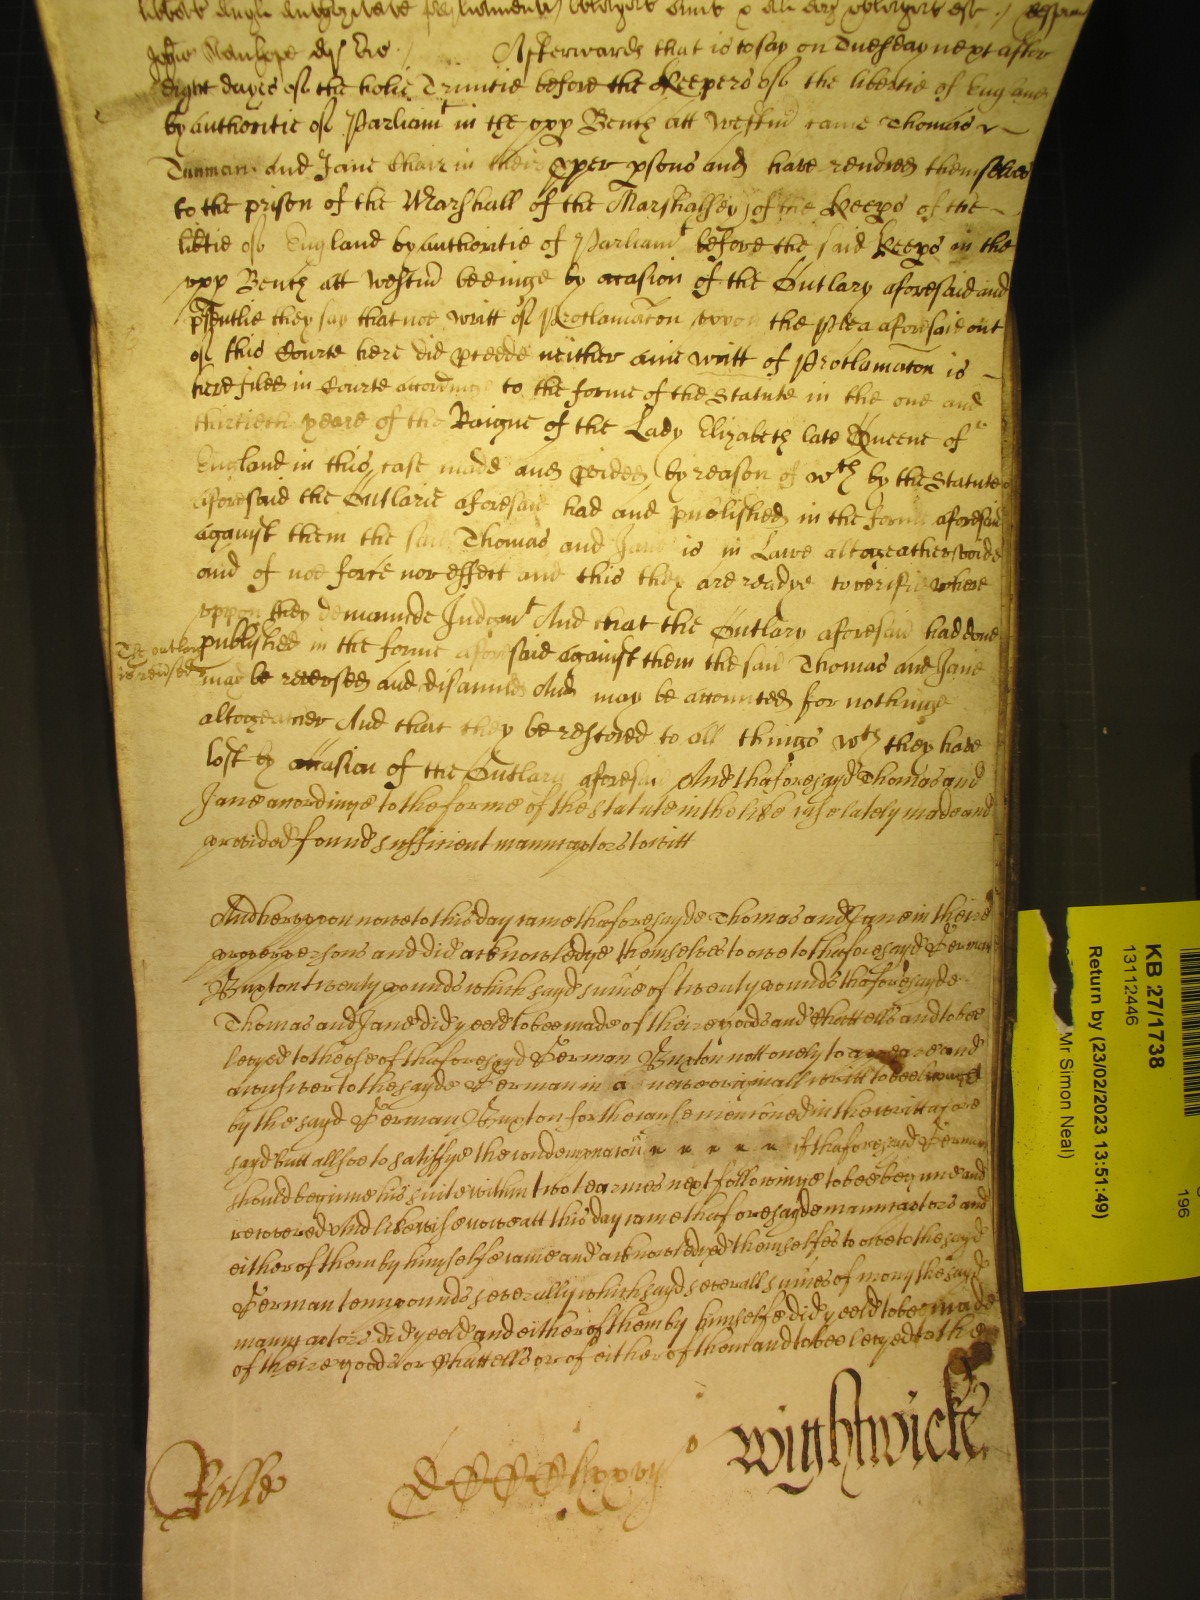 Afterwards that is to say on Tuesday next after
eight dayes of the holie Trinitie before the Keepers of the libertie of England
by authoritie of Parliamt in the vpp Bench att Westm̃ came Thomas
Tunman and Jane Chair in their pper psons and have rendred themselves
to the prison of the Marshall of the Marshallsey of the Keeps of the
libtie of England by authoritie of Parliamt before the said Keeps in the
vpp Bench att Westm̃ beeinge by occasion of the Outlary aforesaid and
psentlie they say that noe writt of Proclamac̃on vpon the Plea aforesaid out
of this Courte here did pceede neither anie writt of Proclamac̃on is
here filed in Courte accordinge to the forme of the Statute in the one and
thirtieth yeare of the Raigne of the Lady Elizabeth late Queene of
England in this case made and pvided by reason of wch by the Statute
aforesaid the Outlarie aforesaid had and published in the forme aforesaid
against them the said Thomas and Jane is in Lawe altogeather voide
and of noe force nor effect and this they are readye to verifie where
vppon they demaunde Judgmt And that the Outlary aforesaid had done
The outlary
is reũsed
published in the forme aforesaid against them the said Thomas and Jane
may be reversed and disannulld And may be accounted for nothinge
altogeather And that they be restored to all things wch they have
lost by occasion of the Outlary aforesaid And thaforesayd Thomas and
Jane accordinge to the forme of the statute in the like case lately made and
provided found sufficient manucaptors to witt
And hervpon nowe to this day came thaforesayde Thomas and Jane in theire
proper persons and did acknowledge themselves to owe to thaforesayd Jerman
Buxton twenty pounds which sayd sum̃e of twenty pounds thaforesayde
Thomas and Jane did yeeld to bee made of theire goods and Chattells and to bee
levyed to the vse of thaforesayd Jerman Buxton nott onely to appeare and
answer to the sayde Jerman in a newe originall writt to bee
by the sayd Jerman Buxton for the cause mencõned in the writt afore
sayd butt allsoe to satisfye the condemnac̃on if thaforesaid Jerman
should beginne his suite within two tearmes next followinge to bee begunne and
recovered And likewise nowe att this day came thaforesayde manucaptors and
either of them by himselfe came and acknowledged themselfes to owe to the sayd
Jerman tenn pounds severally which sayd severall sum̃es of mony the sayd
manucaptors did yeeld and either of them by himselfe did yeeld to bee made
of theire goods or Chattells or of either of them and to bee levyed to the
Rolle
Wightwicke
KB 27/1738
13112446
Return by (23/02/2023 13:51:49)
Mr Simon Neal)
196